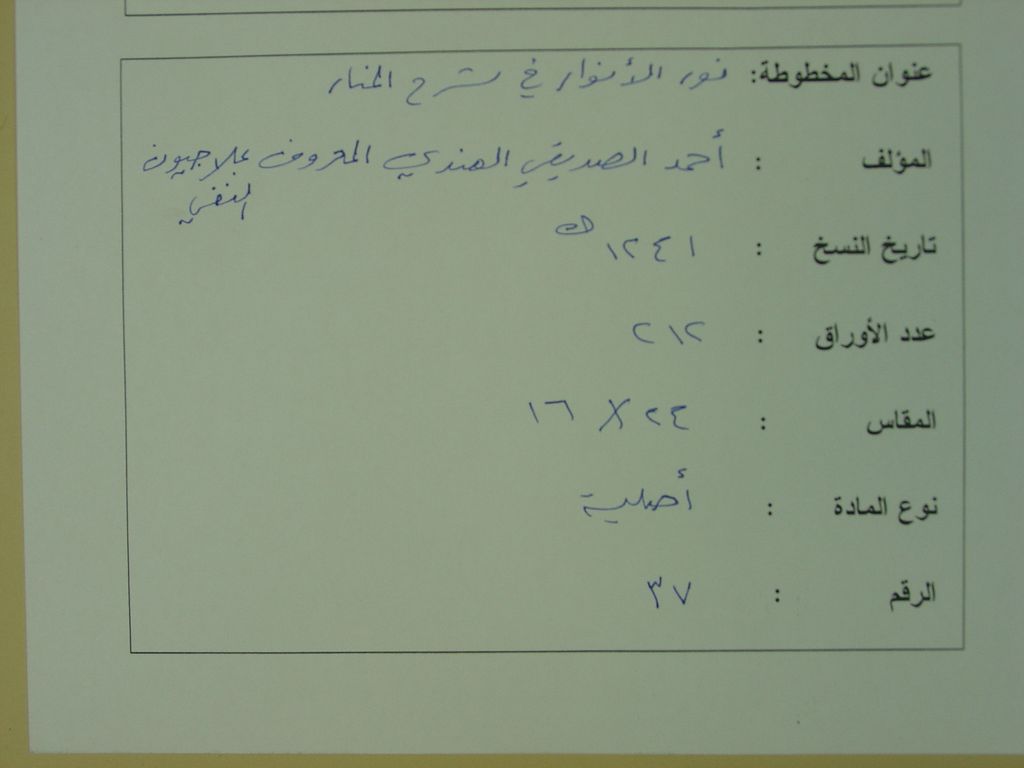 عنوان المخطوطة: نور الأنوار في شرح المنار
المؤلف : أحمد الصديقي الهندي المعروف بملا جيون
الحنفي
تاريخ النسخ : ١٢٤١ هـ
عدد الأوراق : ٢١٢
المقاس : ٢٤ × ١٦
نوع المادة : أصلية
الرقم : ٣٧